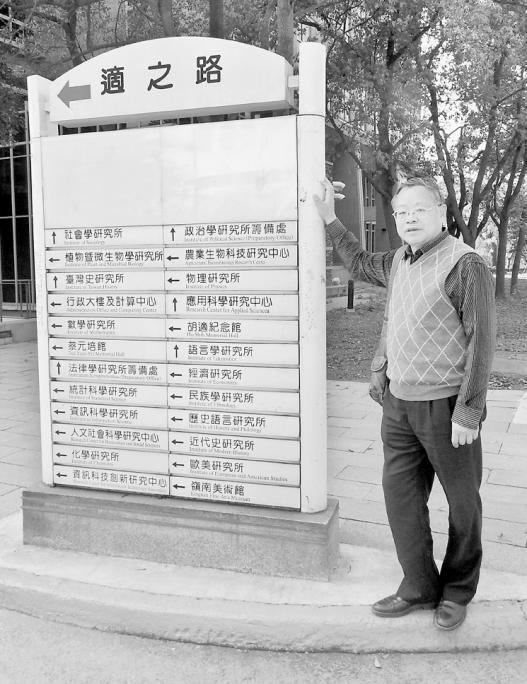 適之路
社會學研究所
Institute of Sociology
植物暨微生物學研究所
Institute of Plant and Microbial Biology
臺灣史研究所
Institute of Taiwan History
行政大樓及計算中心
Administration Office and Computing Center
數學研究所
Institute of Mathematics
蔡元培館
法律學研究所籌備處
統計科學研究所
Institute of Statistical Science
資訊科學研究所
Institute of Information Science
人文社會科學研究中心
化學研究所
Institute of Chemistry
資訊科技創新研究中心
政治學研究所籌備處
Institute of Political Science (Preparatory Office)
農業生物科技研究中心
Agricultural Biotechnology Research Center
物理研究所
Institute of Physics
應用科學研究中心
Research Center for Applied Sciences
胡適紀念館
Hu Shih Memorial Hall
語言學研究所
Institute of Linguistics
經濟研究所
Institute of Economics
民族學研究所
Institute of Ethnology
歷史語言研究所
Institute of History and Philology
近代史研究所
Institute of Modern History
歐美研究所
Institute of European and American Studies
嶺南美術館
Lingnan Fine Arts Museum